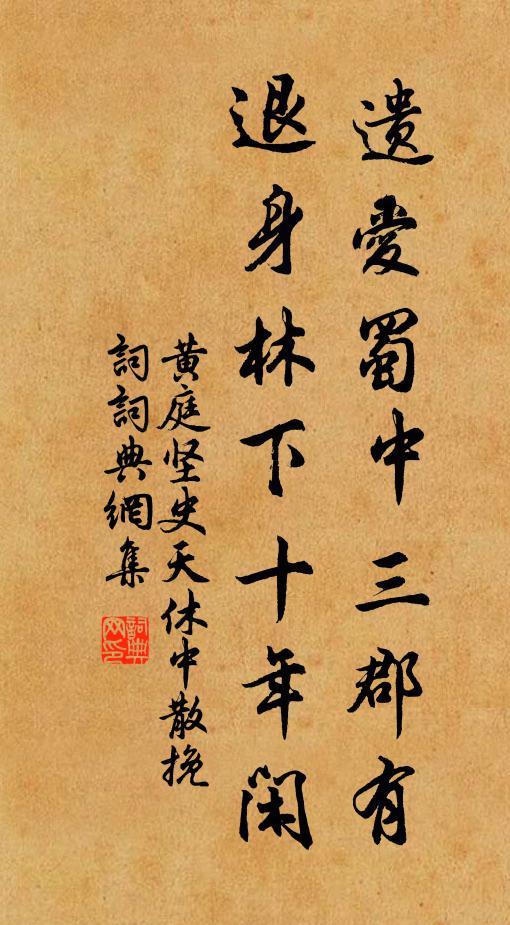 遗愛蜀中三郡有
退身林下十年闲
黄庭坚史天休中散挽
詞詞典網集
詞典网印